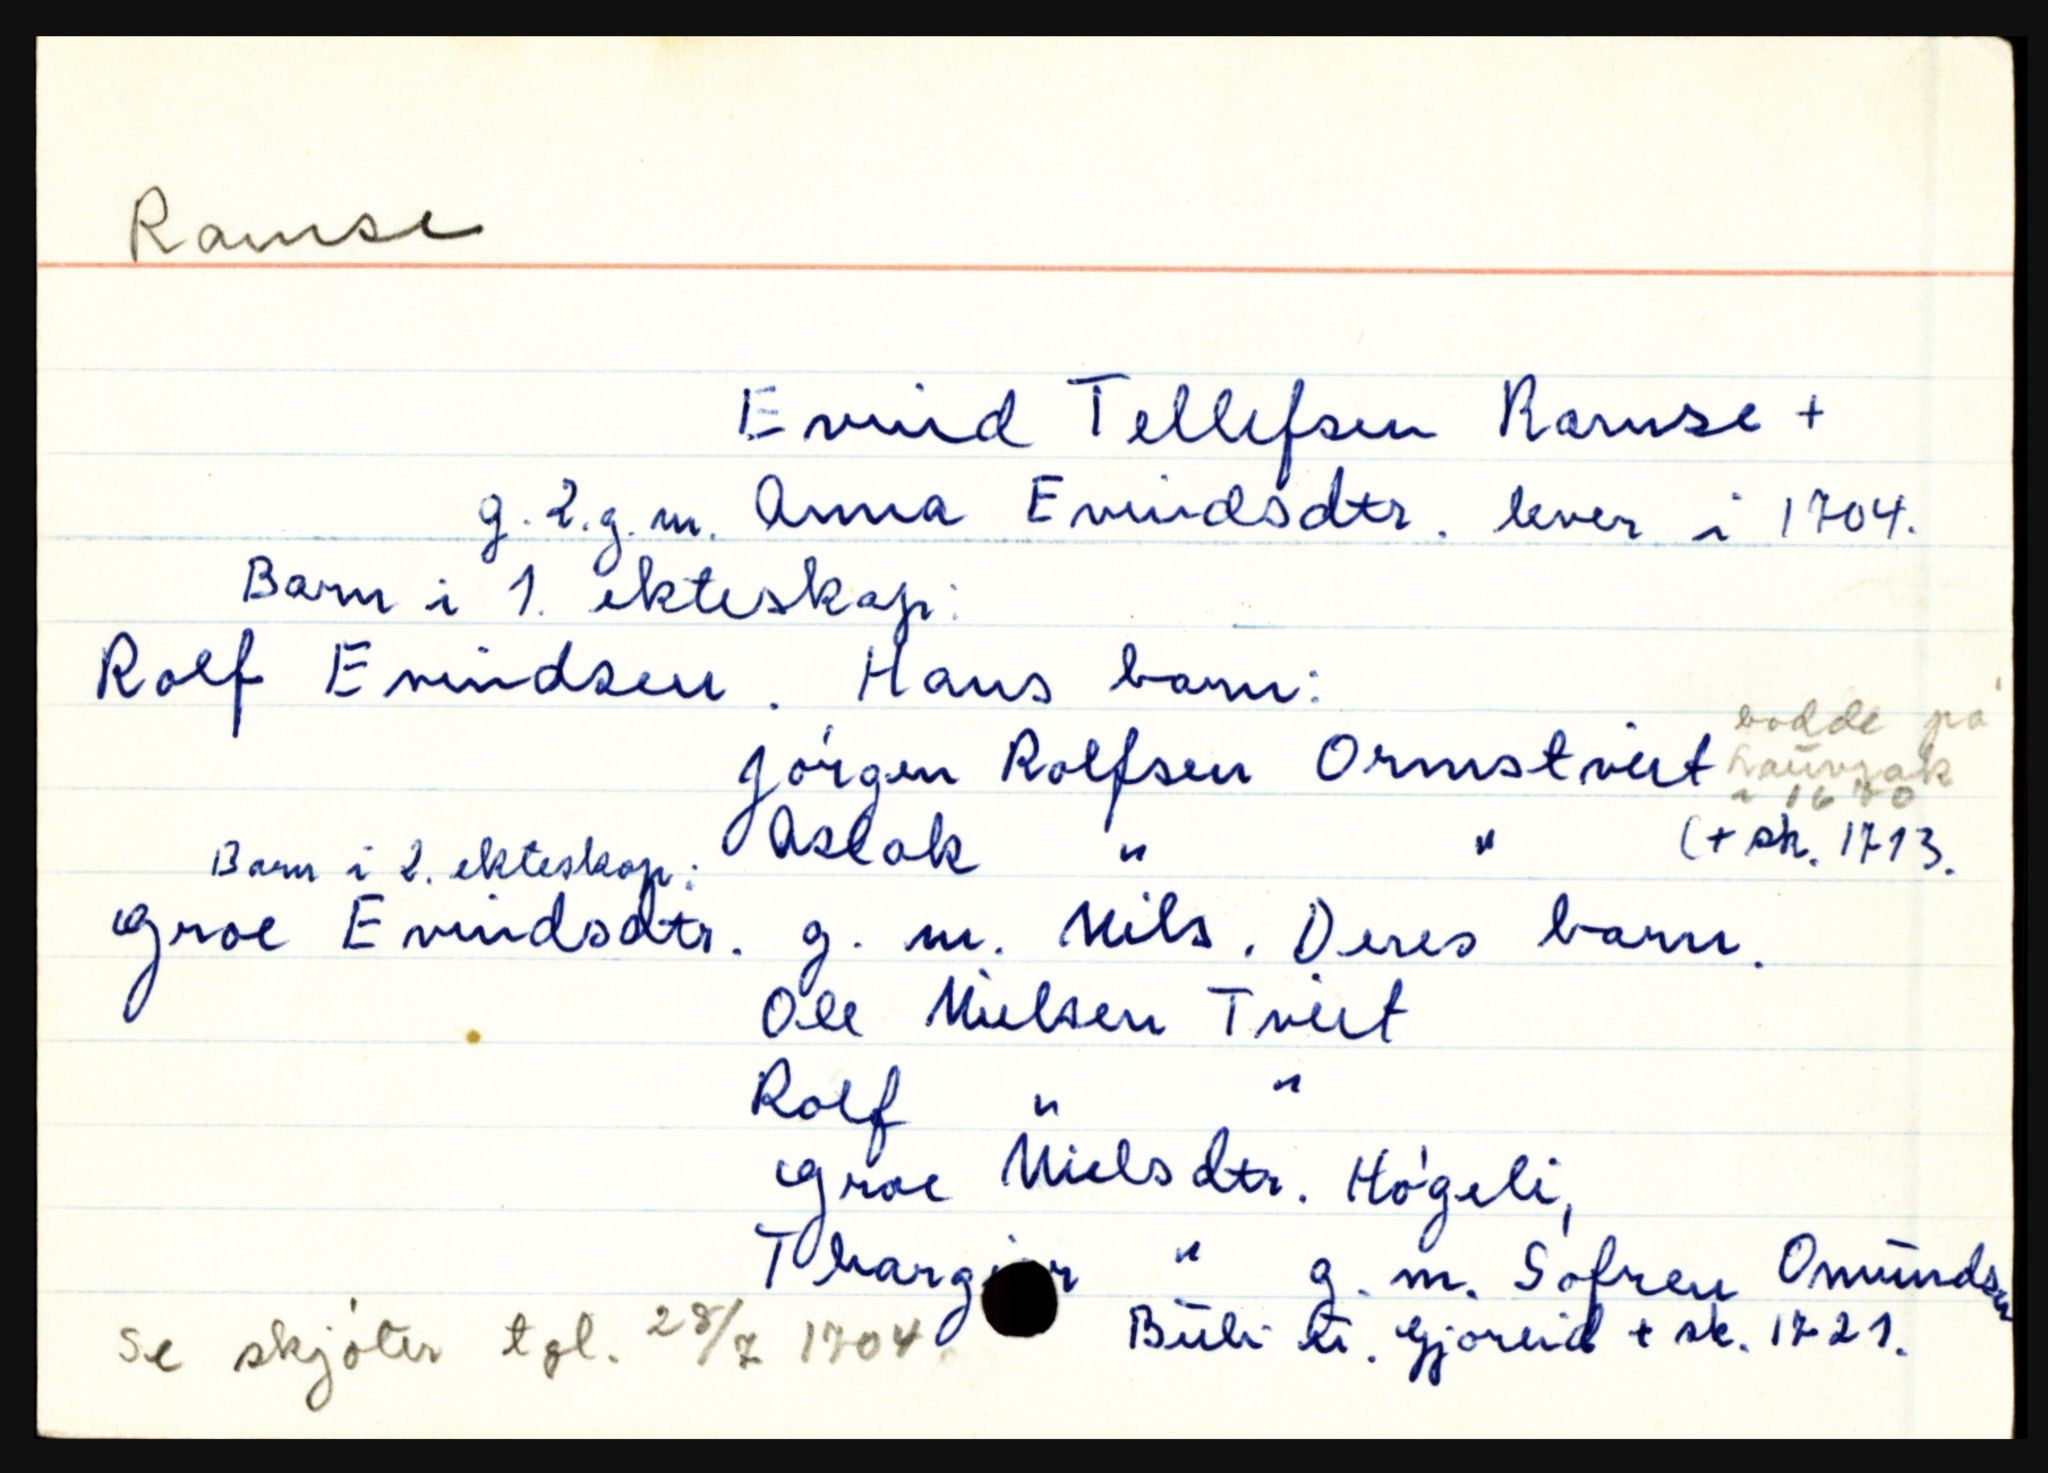 Ramse
Evind Tellefsen Ramse +
g. 2. g. m. Anna Evindsdtr. lever i 1704.
Barn i 1. ekteskap:
Rolf Evindsen. Hans barn:
bodde på
Jørgen Rolfsen Ormstveit Lauvrak
i 1670
Aslak " " (+ sk. 1713.
Barn i 2. ekteskap:
Groe Evindsdtr. g. m. Nils. Deres barn.
Ole Nielsen Tveit
Rolf " "
Groe Nielsdtr. Høgeli,
Thargjer " g. m. Søfren Omundsen
Buli ti. Gjøreid + sk. 1721.
Se skjøter tgl. 28/7 1704.